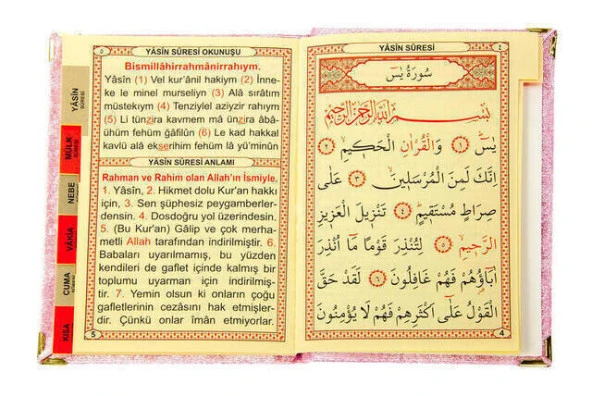 YÂSİN SÛRESİ OKUNUŞU
Bismillâhirrahmânirrahıym.
Yâsîn (1) Vel kur'ânil hakiym (2) İnne-
ke le minel murseliyn (3) Alâ sıratım
müstekıym (4) Tenziylel aziyzir rahıym
(5) Li tünzira kavmem mâ ünzira âbâ-
ühüm fehüm ğâfilûn (6) Le kad hakkal
kavlü alâ ekserihim fehüm lâ yü'minûn
YÂSİN SÛRESİ ANLAMI
Rahman ve Rahim olan Allah'ın İsmiyle.
1. Yâsîn, 2. Hikmet dolu Kur'an hakkı
için, 3. Sen şüphesiz peygamberler-
densin. 4. Dosdoğru yol üzerindesin.
5. (Bu Kur'an) Gâlip ve çok merha-
metli Allah tarafından indirilmiştir. 6.
Babaları uyarılmamış, bu yüzden
kendileri de gaflet içinde kalmış bir
toplumu uyarman için indirilmiş-
tir. 7. Yemin olsun ki onların çoğu
gafletlerinin cezasını hak etmişler-
dir. Çünkü onlar îman etmiyorlar.
5
YÂSİN
MÜLK
NEBE
VÂKIA
CUMA
KISA
YÂSİN SÛRESİ
٤
سُورَةُ يٰسٓ
بِسْمِ اللّٰهِ الرَّحْمٰنِ الرَّحِيمِ
يٰسٓ ١ وَالْقُرْاٰنِ الْحَكِيمِ ٢
اِنَّكَ لَمِنَ الْمُرْسَلِينَ ٣ عَلٰى
صِرَاطٍ مُسْتَقِيمٍ ٤ تَنْزِيلَ الْعَزِيزِ
الرَّحِيمِ ٥ لِتُنْذِرَ قَوْمًا مَٓا اُنْذِرَ
اٰبَٓاؤُ۬هُمْ فَهُمْ غَافِلُونَ ٦ لَقَدْ حَقَّ
الْقَوْلُ عَلٰٓى اَكْثَرِهِمْ فَهُمْ لَا يُؤْمِنُونَ
4